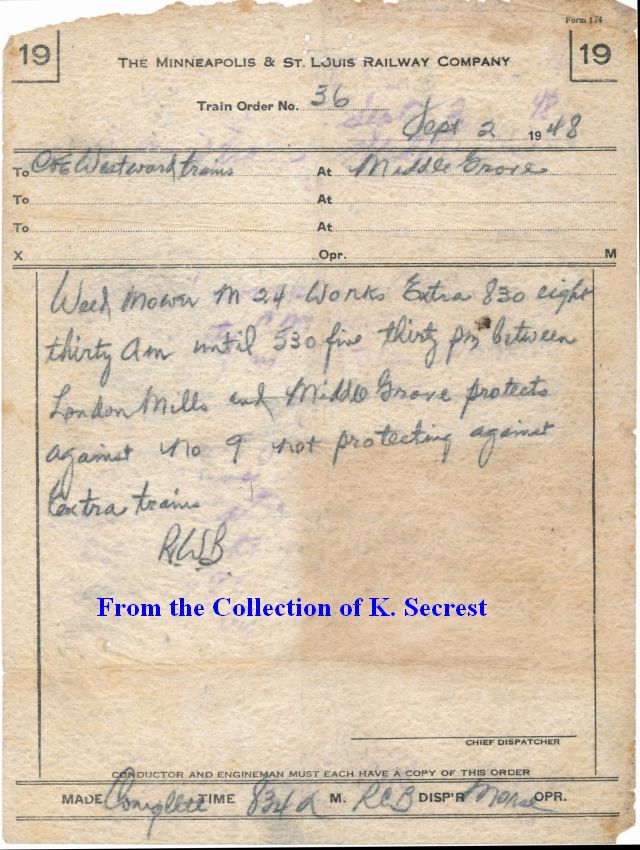 Form 174
19 19
THE MINNEAPOLIS & ST. LOUIS RAILWAY COMPANY
Train Order No. 36
Sept 2 1948
To C&E Westward trains At Middle Grove
To At
To At
X Opr. M
Weed Mower M 24 Works Extra 830 eight
thirty am until 530 five thirty pm between
London Mills and Middle Grove protects
against No 9 not protecting against
Extra trains
RWB
From the Collection of K. Secrest
CHIEF DISPATCHER
CONDUCTOR AND ENGINEMAN MUST EACH HAVE A COPY OF THIS ORDER
MADE Complete TIME 834 a M. RCB DISP'R OPR.